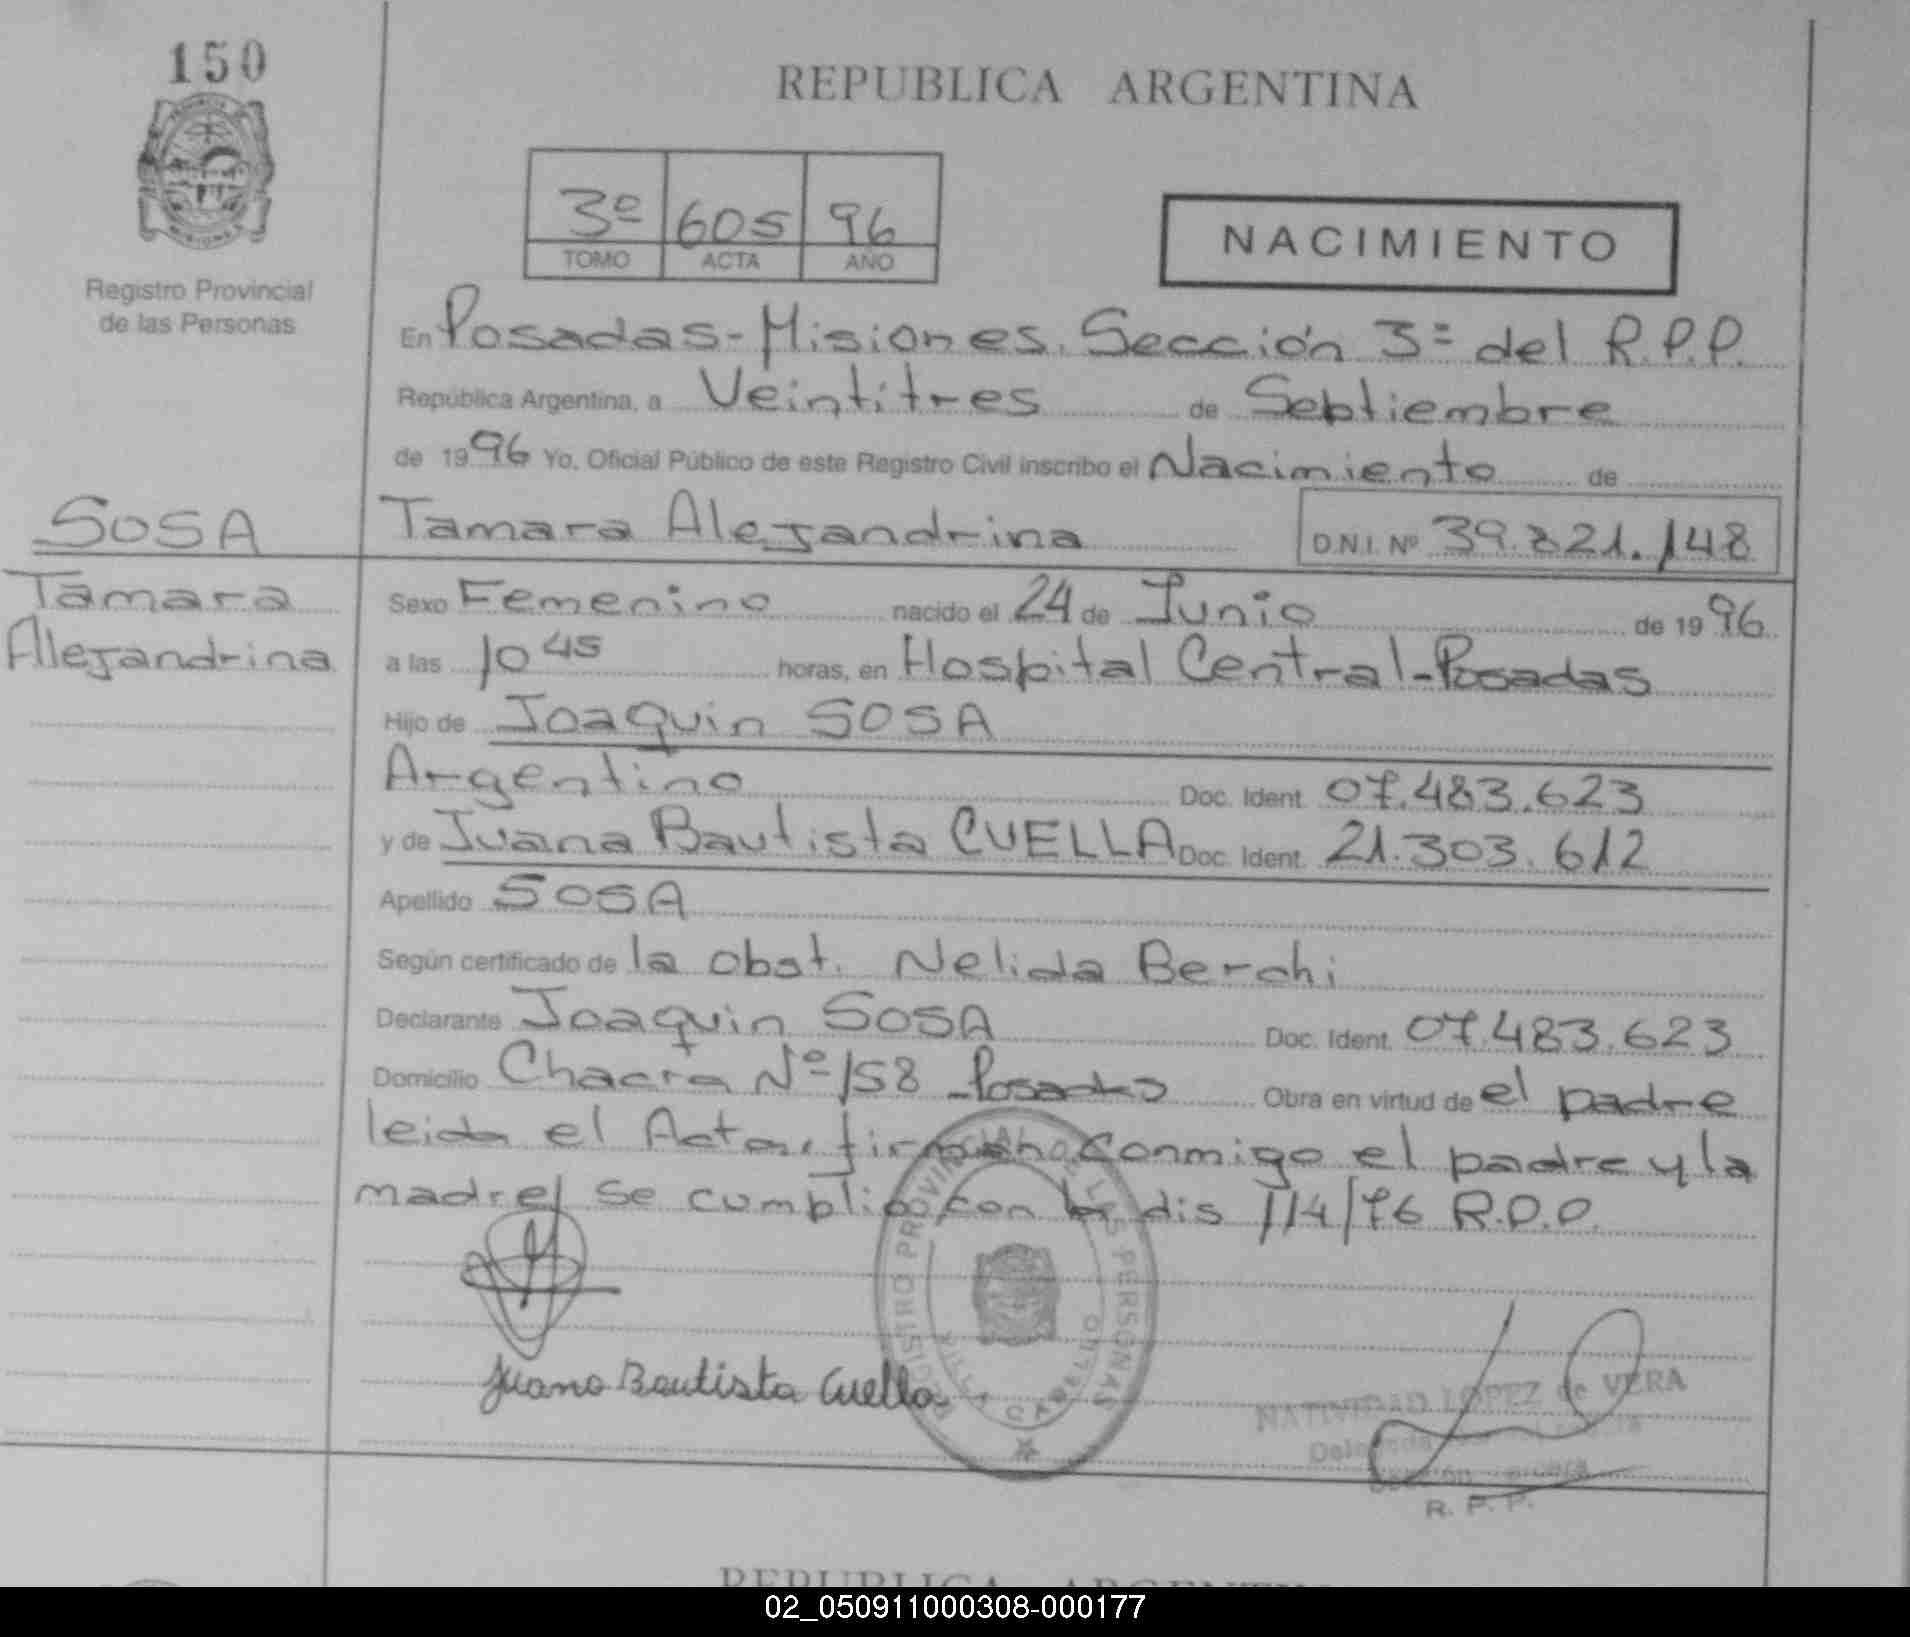 150
REPUBLICA ARGENTINA
3º 605 96
TOMO ACTA AÑO
NACIMIENTO
MISIONES
Registro Provincial
de las Personas
En Posadas-Misiones. Sección 3ª del R.P.P.
República Argentina, a Veintitres de Septiembre
de 1996 Yo, Oficial Público de este Registro Civil inscribo el Nacimiento de
SOSA
Tamara Alejandrina D.N.I. Nº 39.821.148
Tamara
Alejandrina
Sexo Femenino nacido el 24 de Junio de 1996
a las 10 45 horas, en Hospital Central-Posadas
Hijo de Joaquin SOSA
Argentino Doc. Ident. 07.483.623
y de Juana Bautista CUELLA Doc. Ident. 21.303.612
Apellido SOSA
Según certificado de la obst. Nelida Berchi
Declarante Joaquin SOSA Doc. Ident. 07.483.623
Domicilio Chacra Nº 158 - Posadas Obra en virtud de el padre
leida el Acta, firman conmigo el padre y la
madre/ se cumplio con la dis 114/76 R.P.P.
REGISTRO PROVINCIAL DE LAS PERSONAS
Juana Bautista Cuella
NATIVIDAD LOPEZ de VERA
R. P. P.
REPUBLICA ARGENTINA
02_050911000308-000177